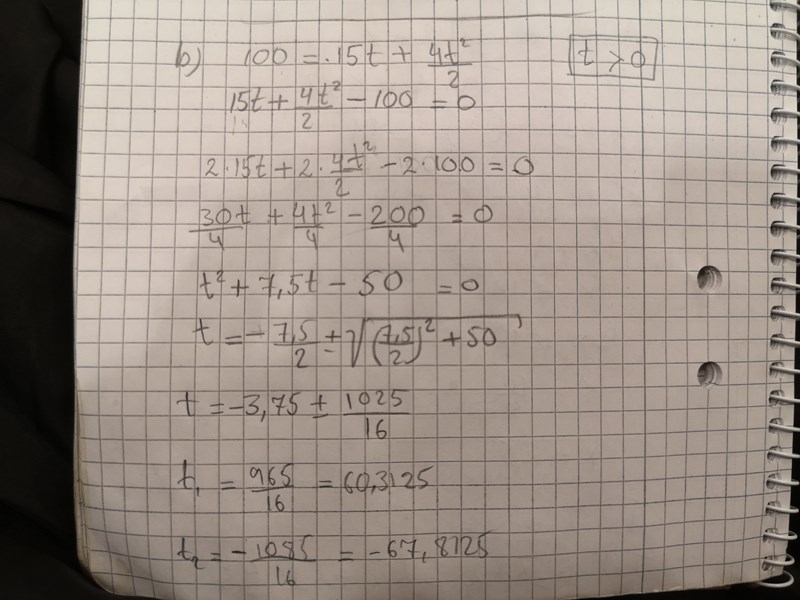 b) 100 = .15t + 4t²/2 t > 0
15t + 4t²/2 - 100 = 0
2·15t + 2·4t²/2 - 2·100 = 0
30t/4 + 4t²/4 - 200/4 = 0
t² + 7,5t - 50 = 0
t = -7,5/2 ± √((7,5/2)² + 50)
t = -3,75 ± 1025/16
t₁ = 965/16 = 60,3125
t₂ = -1085/16 = -67,8125